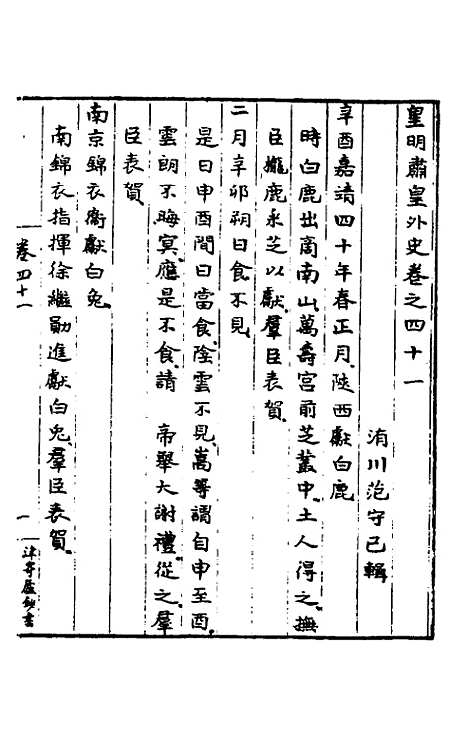 皇明肅皇外史卷之四十一
洧川范守己輯
辛酉嘉靖四十年春正月陝西獻白鹿
時白鹿出商南山萬壽宮前芝叢中土人得之撫
臣攏鹿永芝以獻羣臣表賀
二月辛卯朔日食不見
是日申酉間日當食陰雲不見嵩等謂自申至酉
雲朗不晦冥應是不食請　帝舉大謝禮從之羣
臣表賀
南京錦衣衞獻白兔
南錦衣指揮徐繼勛進獻白兔羣臣表賀
卷四十一
一
津寄廬鈔書